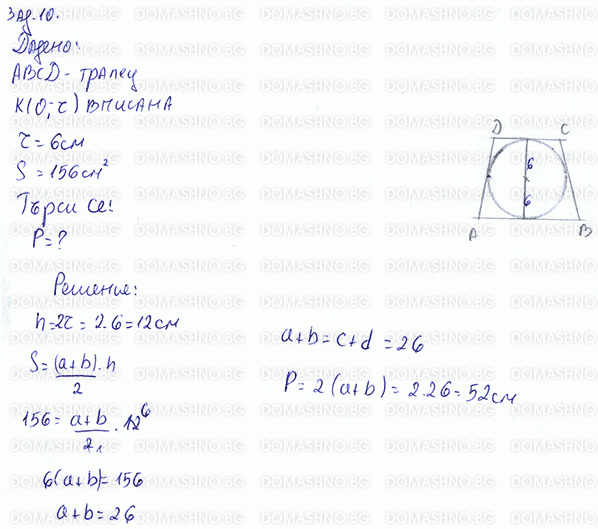 Зад. 10.
Дадено:
ABCD - трапец
K(O; r) вписана
r = 6см
S = 156см²
Търси се:
P = ?
D C
6
6
A B
Решение:
h = 2r = 2.6 = 12см
S = (a+b).h / 2
156 = a+b / 2₁ . 12⁶
6(a+b) = 156
a+b = 26
a+b = c+d = 26
P = 2(a+b) = 2.26 = 52см
DOMASHNO.BG